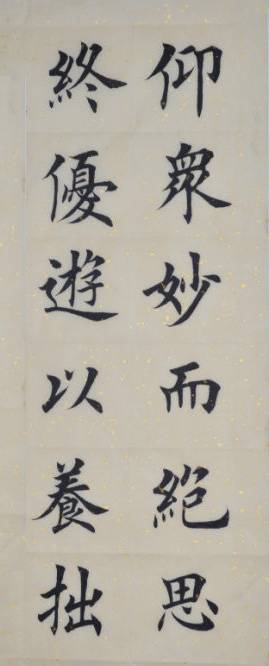 仰眾妙而絕思
終優遊以養拙